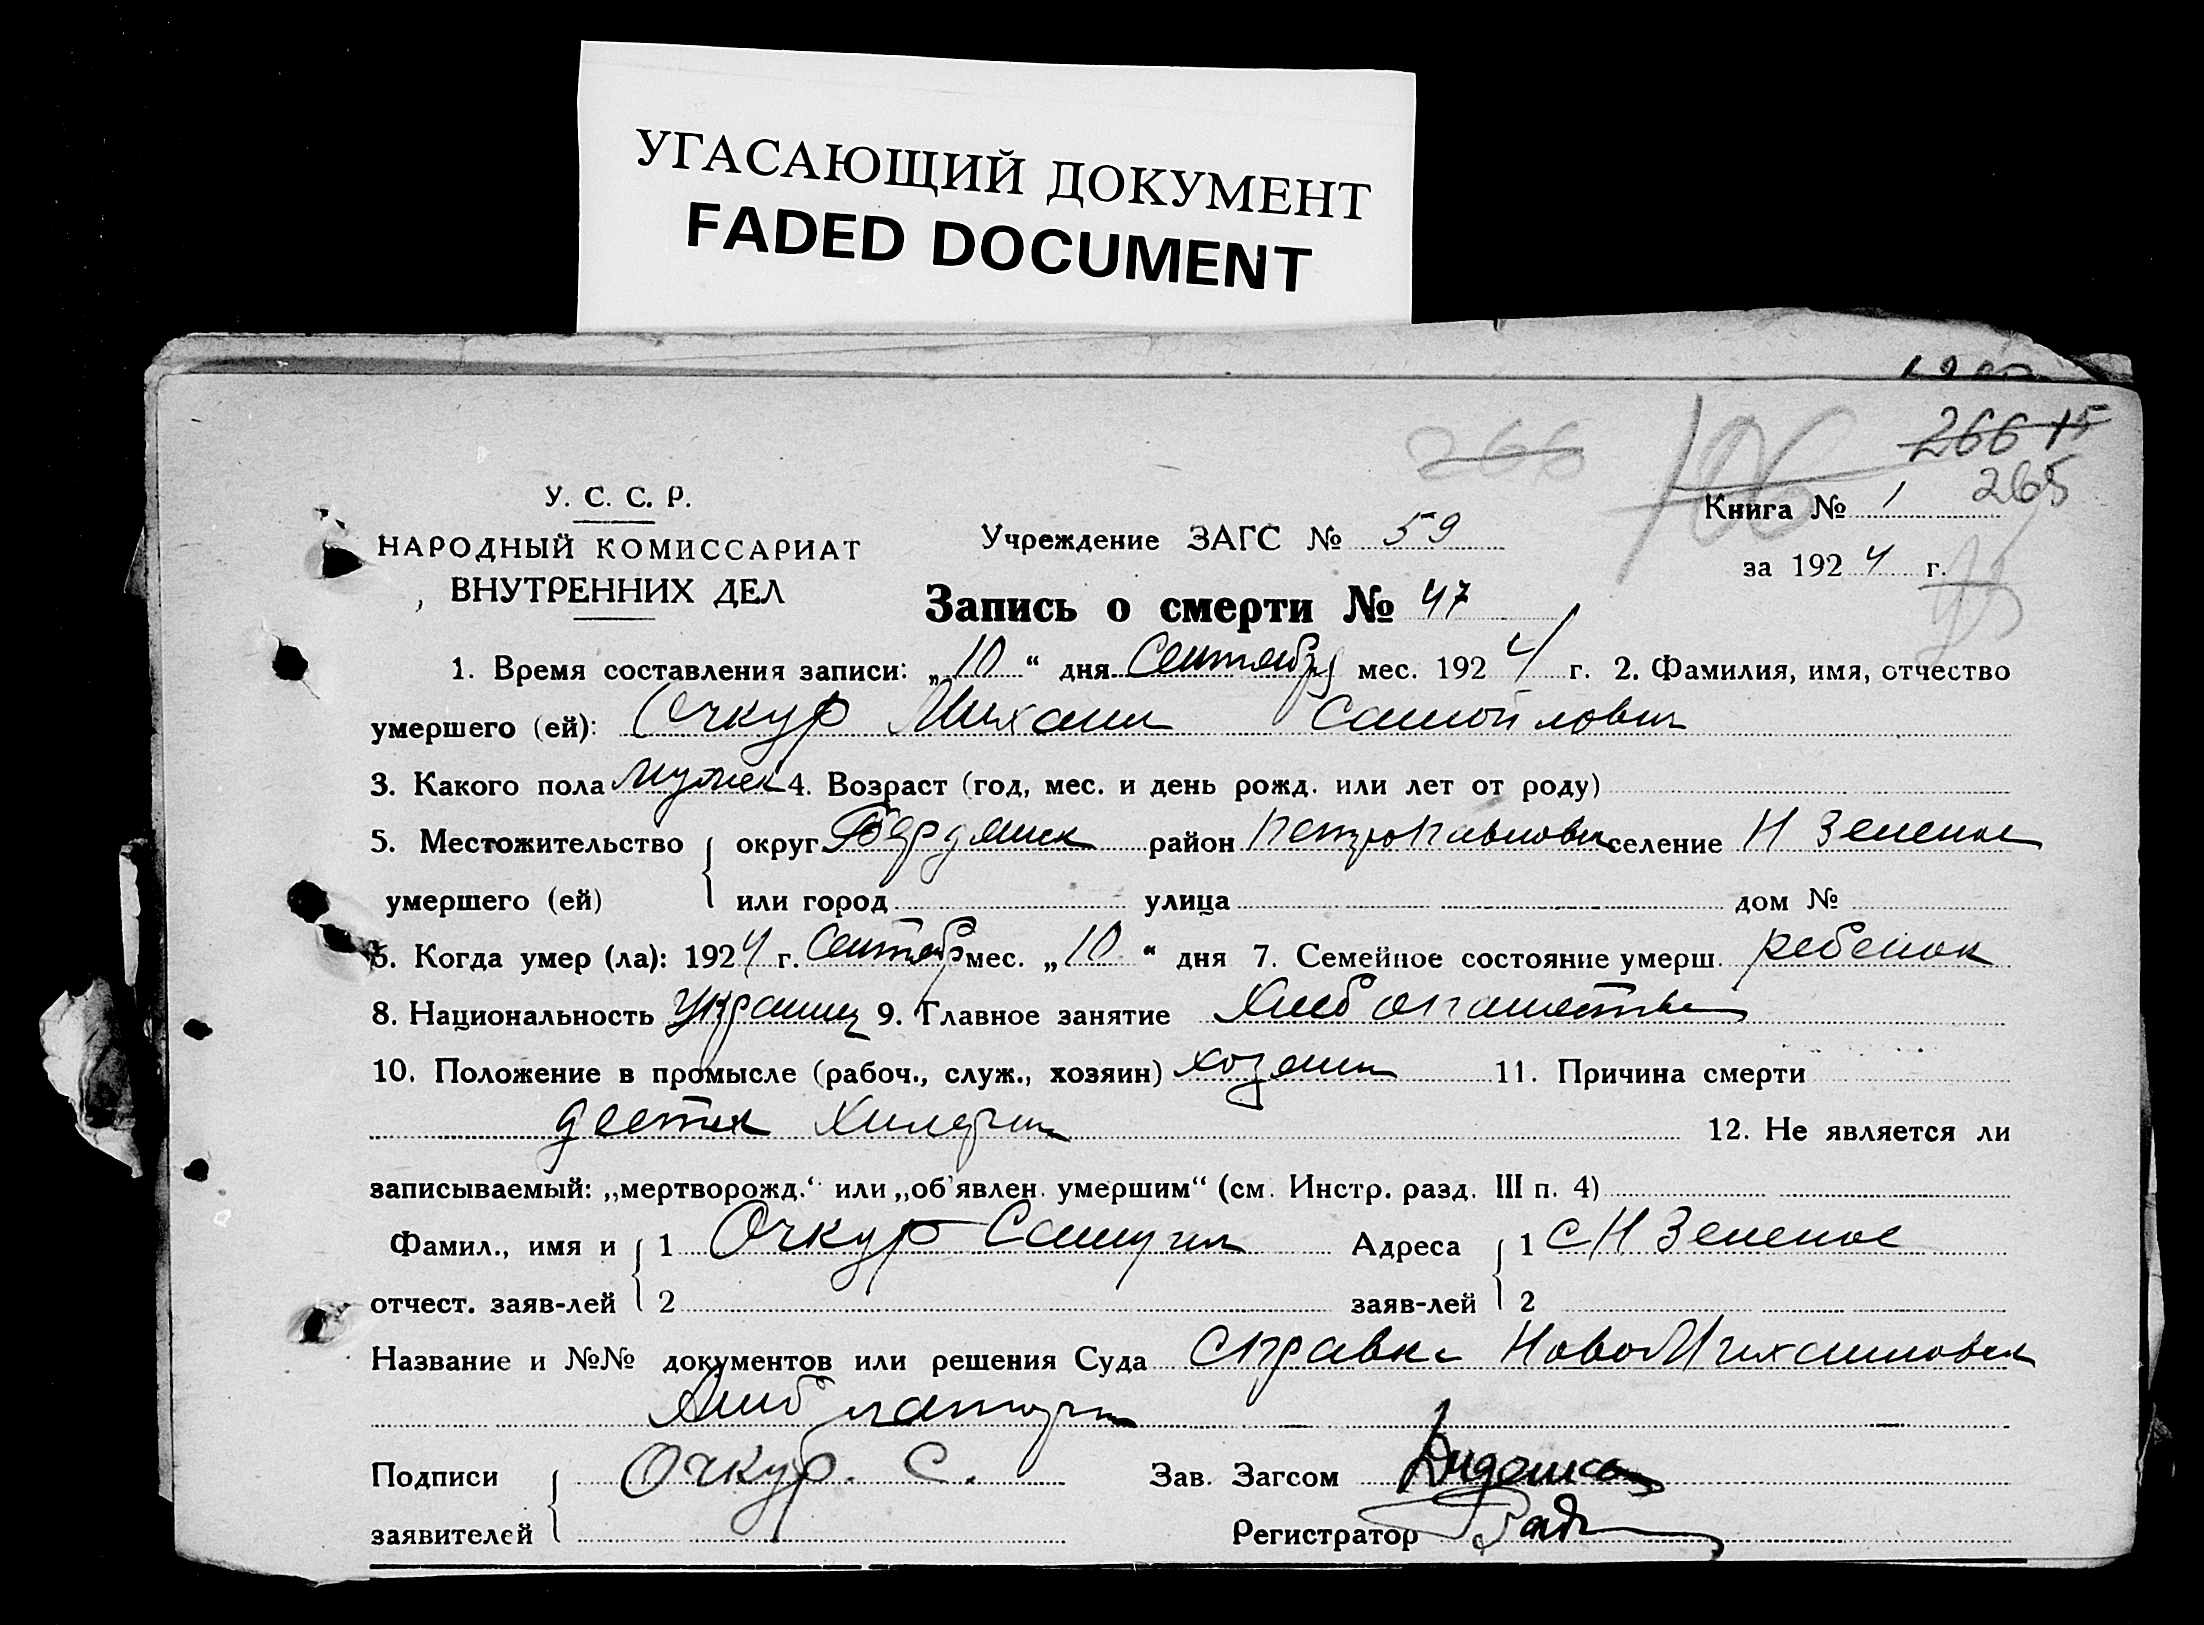 УГАСАЮЩИЙ ДОКУМЕНТ
FADED DOCUMENT
266 106 266 15
265
У. С. С. Р.
НАРОДНЫЙ КОМИССАРИАТ
ВНУТРЕННИХ ДЕЛ
Учреждение ЗАГС № 59
Книга № 1
за 1924 г.
Запись о смерти № 47
1. Время составления записи: „10“ дня Сентября мес. 1924 г. 2. Фамилия, имя, отчество
умершего (ей): Очкур Михаил Самойлович
3. Какого пола мужск 4. Возраст (год, мес. и день рожд. или лет от роду)
5. Местожительство округ Бердянск район Петропавловск селение Н Зеленое
умершего (ей) или город улица дом №
6. Когда умер (ла): 1924 г. Сентябр мес. „10“ дня 7. Семейное состояние умерш. ребенок
8. Национальность Украинец 9. Главное занятие Хлебопашество
10. Положение в промысле (рабоч., служ., хозяин) хозяин 11. Причина смерти
12. Не является ли
записываемый: „мертворожд.“ или „об'явлен. умершим“ (см. Инстр. разд. III п. 4)
Фамил., имя и 1 Очкур Самуил Адреса 1 с Н Зеленое
отчест. заяв-лей 2 заяв-лей 2
Название и №№ документов или решения Суда справка НовоМихайловск
Амбулатории
Подписи Очкур. С. Зав. Загсом
заявителей Регистратор